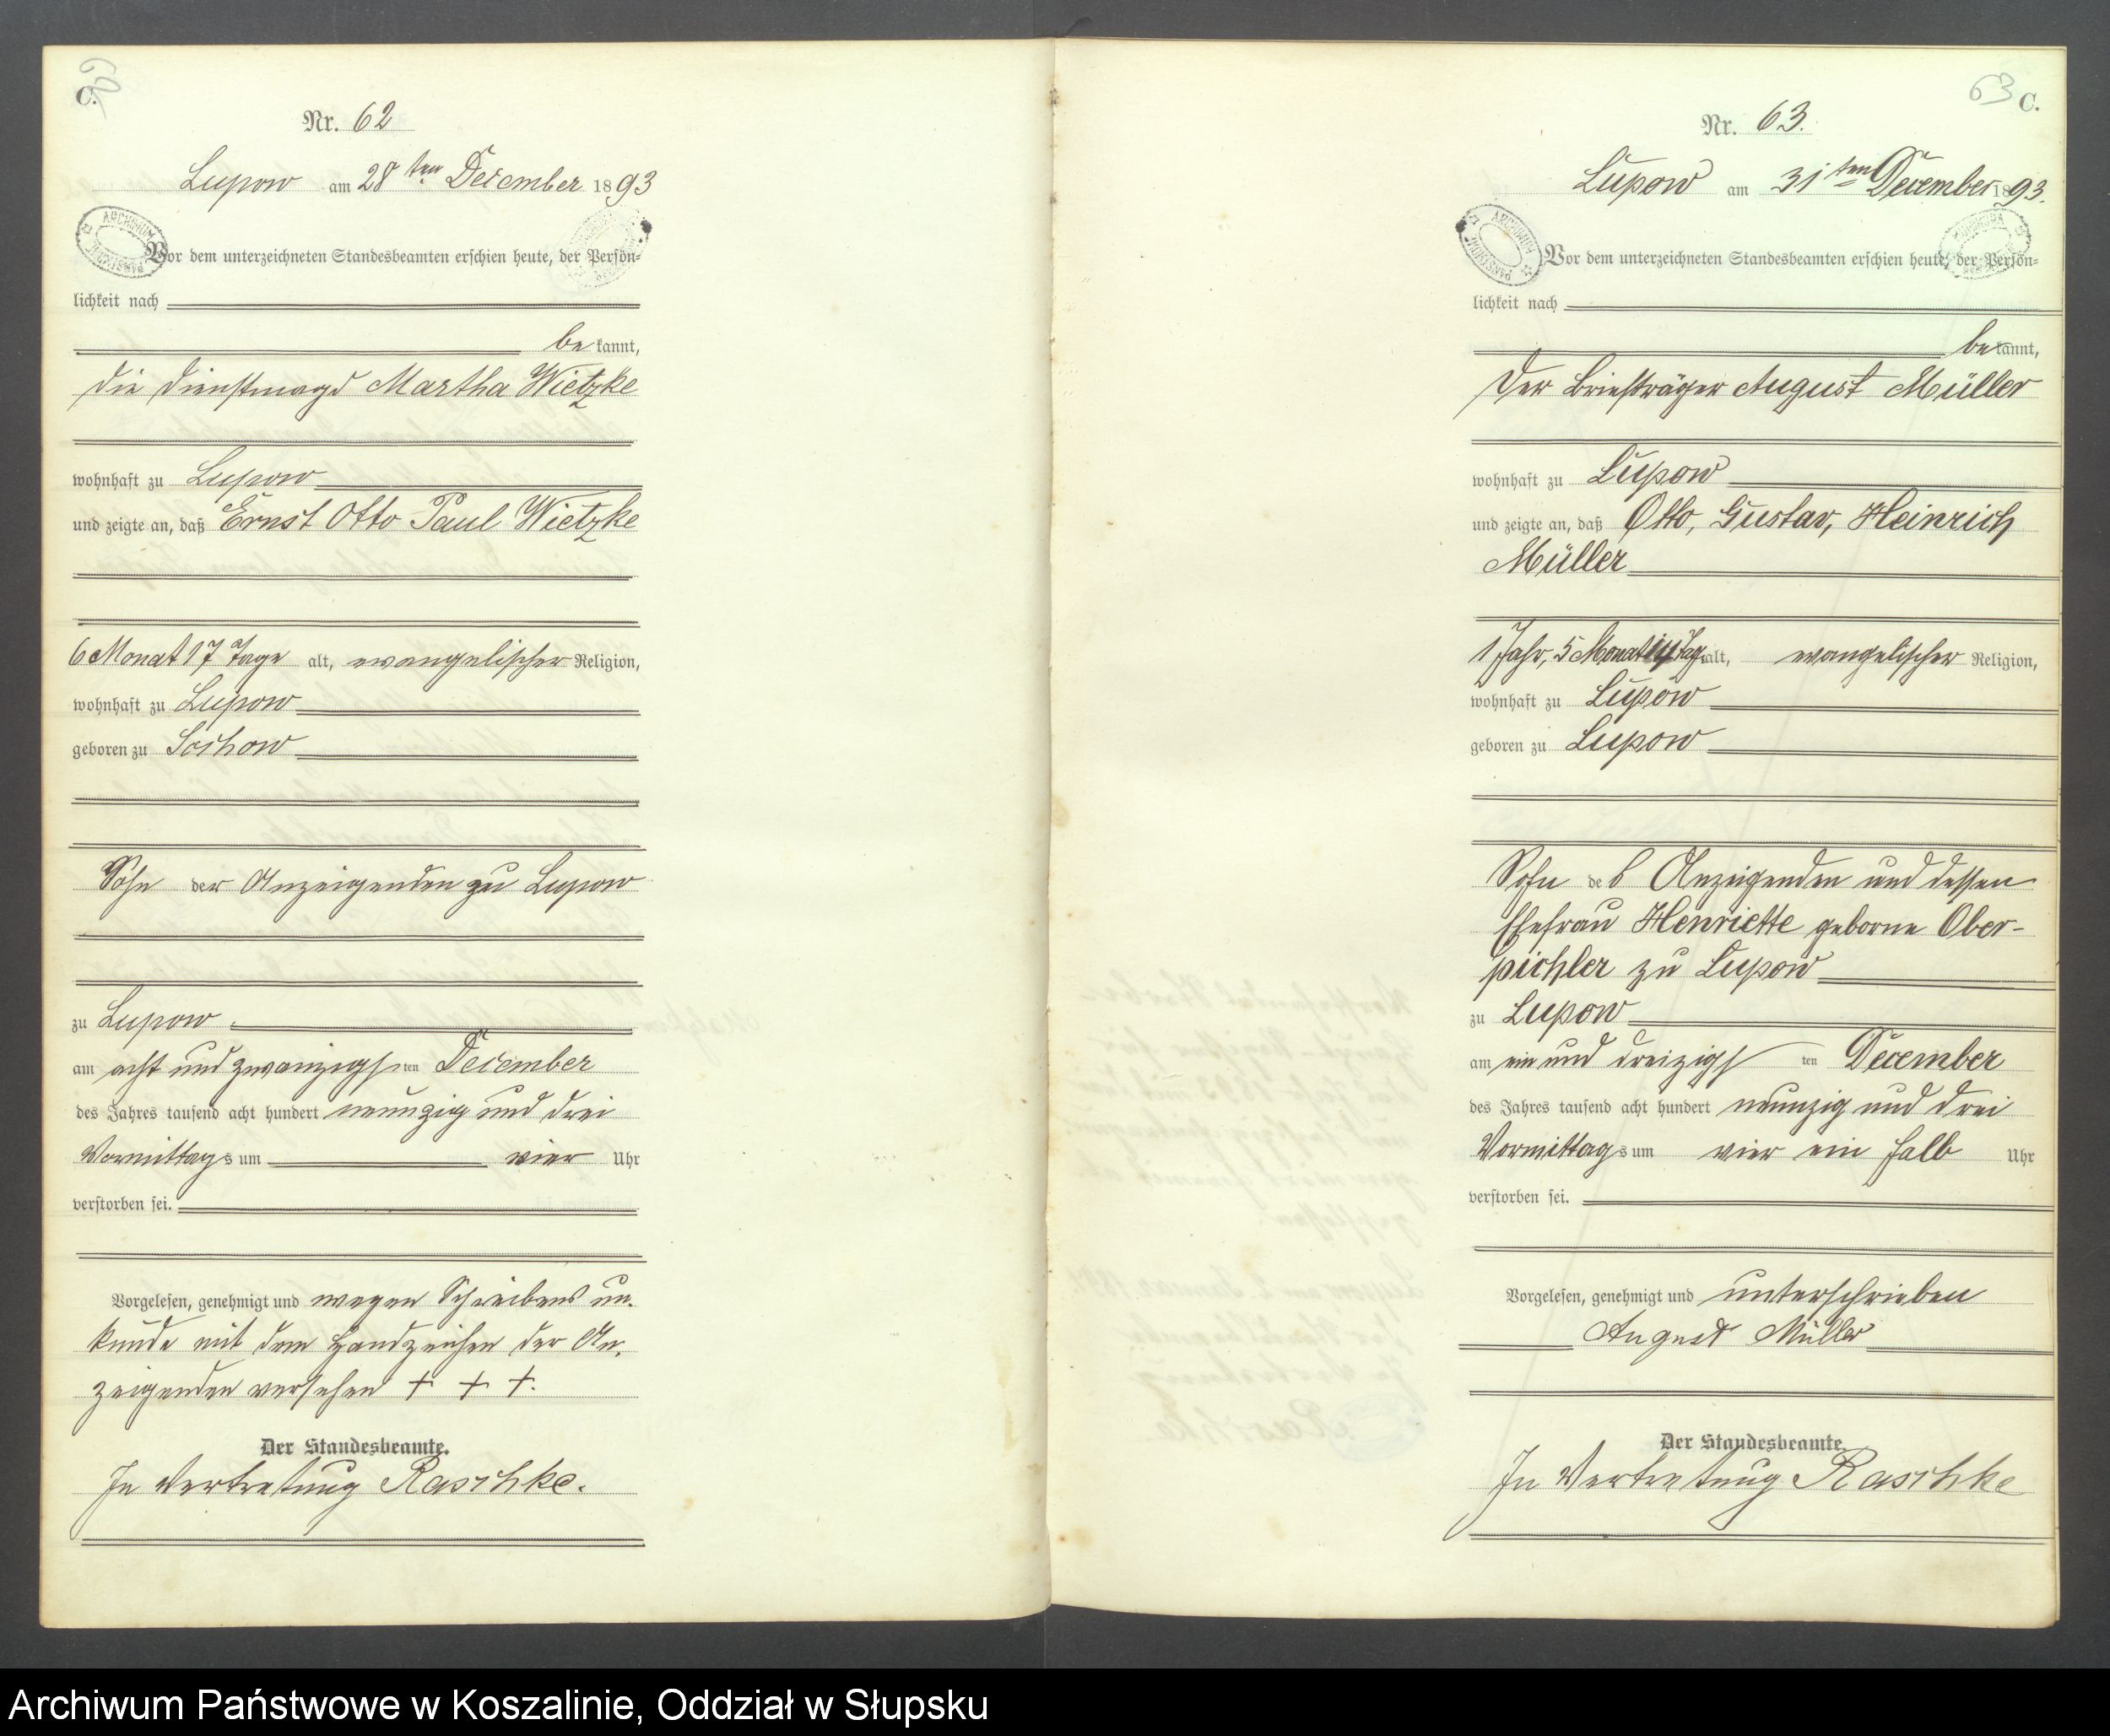 C.
Nr. 62
Lupow am 28ten December 1893
Vor dem unterzeichneten Standesbeamten erschien heute, der Persön-
lichkeit nach
bekannt,
die Dienstmagd Martha Wietzke
wohnhaft zu Lupow
und zeigte an, daß Ernst Otto Paul Wietzke
6 Monat 17 Tage alt, evangelischer Religion,
wohnhaft zu Lupow
geboren zu Sochow
Sohn der Anzeigenden zu Lupow
zu Lupow
am acht und zwanzigsten December
des Jahres tausend acht hundert neunzig und drei
Vormittags um vier Uhr
verstorben sei.
Vorgelesen, genehmigt und wegen Schreibens un-
kunde mit dem Handzeichen der An-
zeigenden versehen + + +.
Der Standesbeamte.
In Vertretung Raschke.
63 C.
Nr. 63.
Lupow am 31ten December 1893.
Vor dem unterzeichneten Standesbeamten erschien heute, der Persön-
lichkeit nach
bekannt,
der Briefträger August Müller
wohnhaft zu Lupow
und zeigte an, daß Otto, Gustav, Heinrich
Müller
1 Jahr, 5 Monat 14 Tag alt, evangelischer Religion,
wohnhaft zu Lupow
geboren zu Lupow
Sohn des Anzeigenden und dessen
Ehefrau Henriette geborne Ober-
pichler zu Lupow
zu Lupow
am ein und dreizigsten December
des Jahres tausend acht hundert neunzig und drei
Vormittags um vier ein halb Uhr
verstorben sei.
Vorgelesen, genehmigt und unterschrieben
August Müller
Der Standesbeamte.
In Vertretung Raschke
Archiwum Państwowe w Koszalinie, Oddział w Słupsku